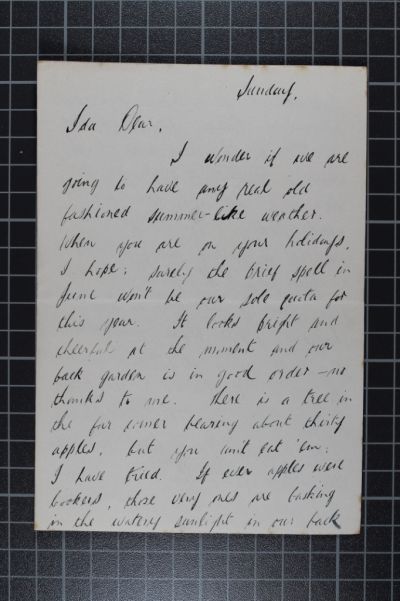 Sunday.
Ida Dear,
I wonder if we are
going to have any real old
fashioned summer-like weather.
When you are on your holidays,
I hope: surely the brief spell in
June won't be our sole quota for
this year. It looks bright and
cheerful at the moment and our
back garden is in good order - no
thanks to me. There is a tree in
the far corner bearing about thirty
apples, but you can't eat 'em;
I have tried. If ever apples were
cookers, those very ones are basking
in the watery sunlight in our back